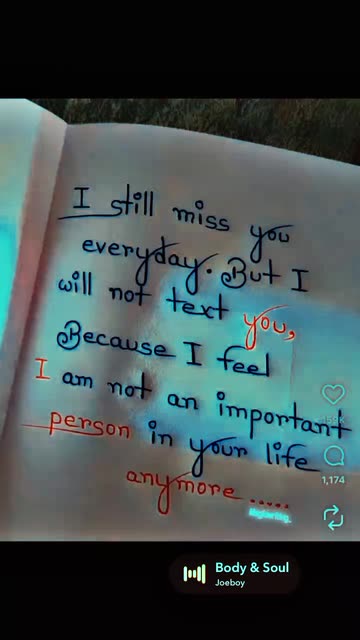 I still miss you
everyday. But I
will not text you,
Because I feel
I am not an important
person in your life
anymore .....
1,174
Body & Soul
Joeboy